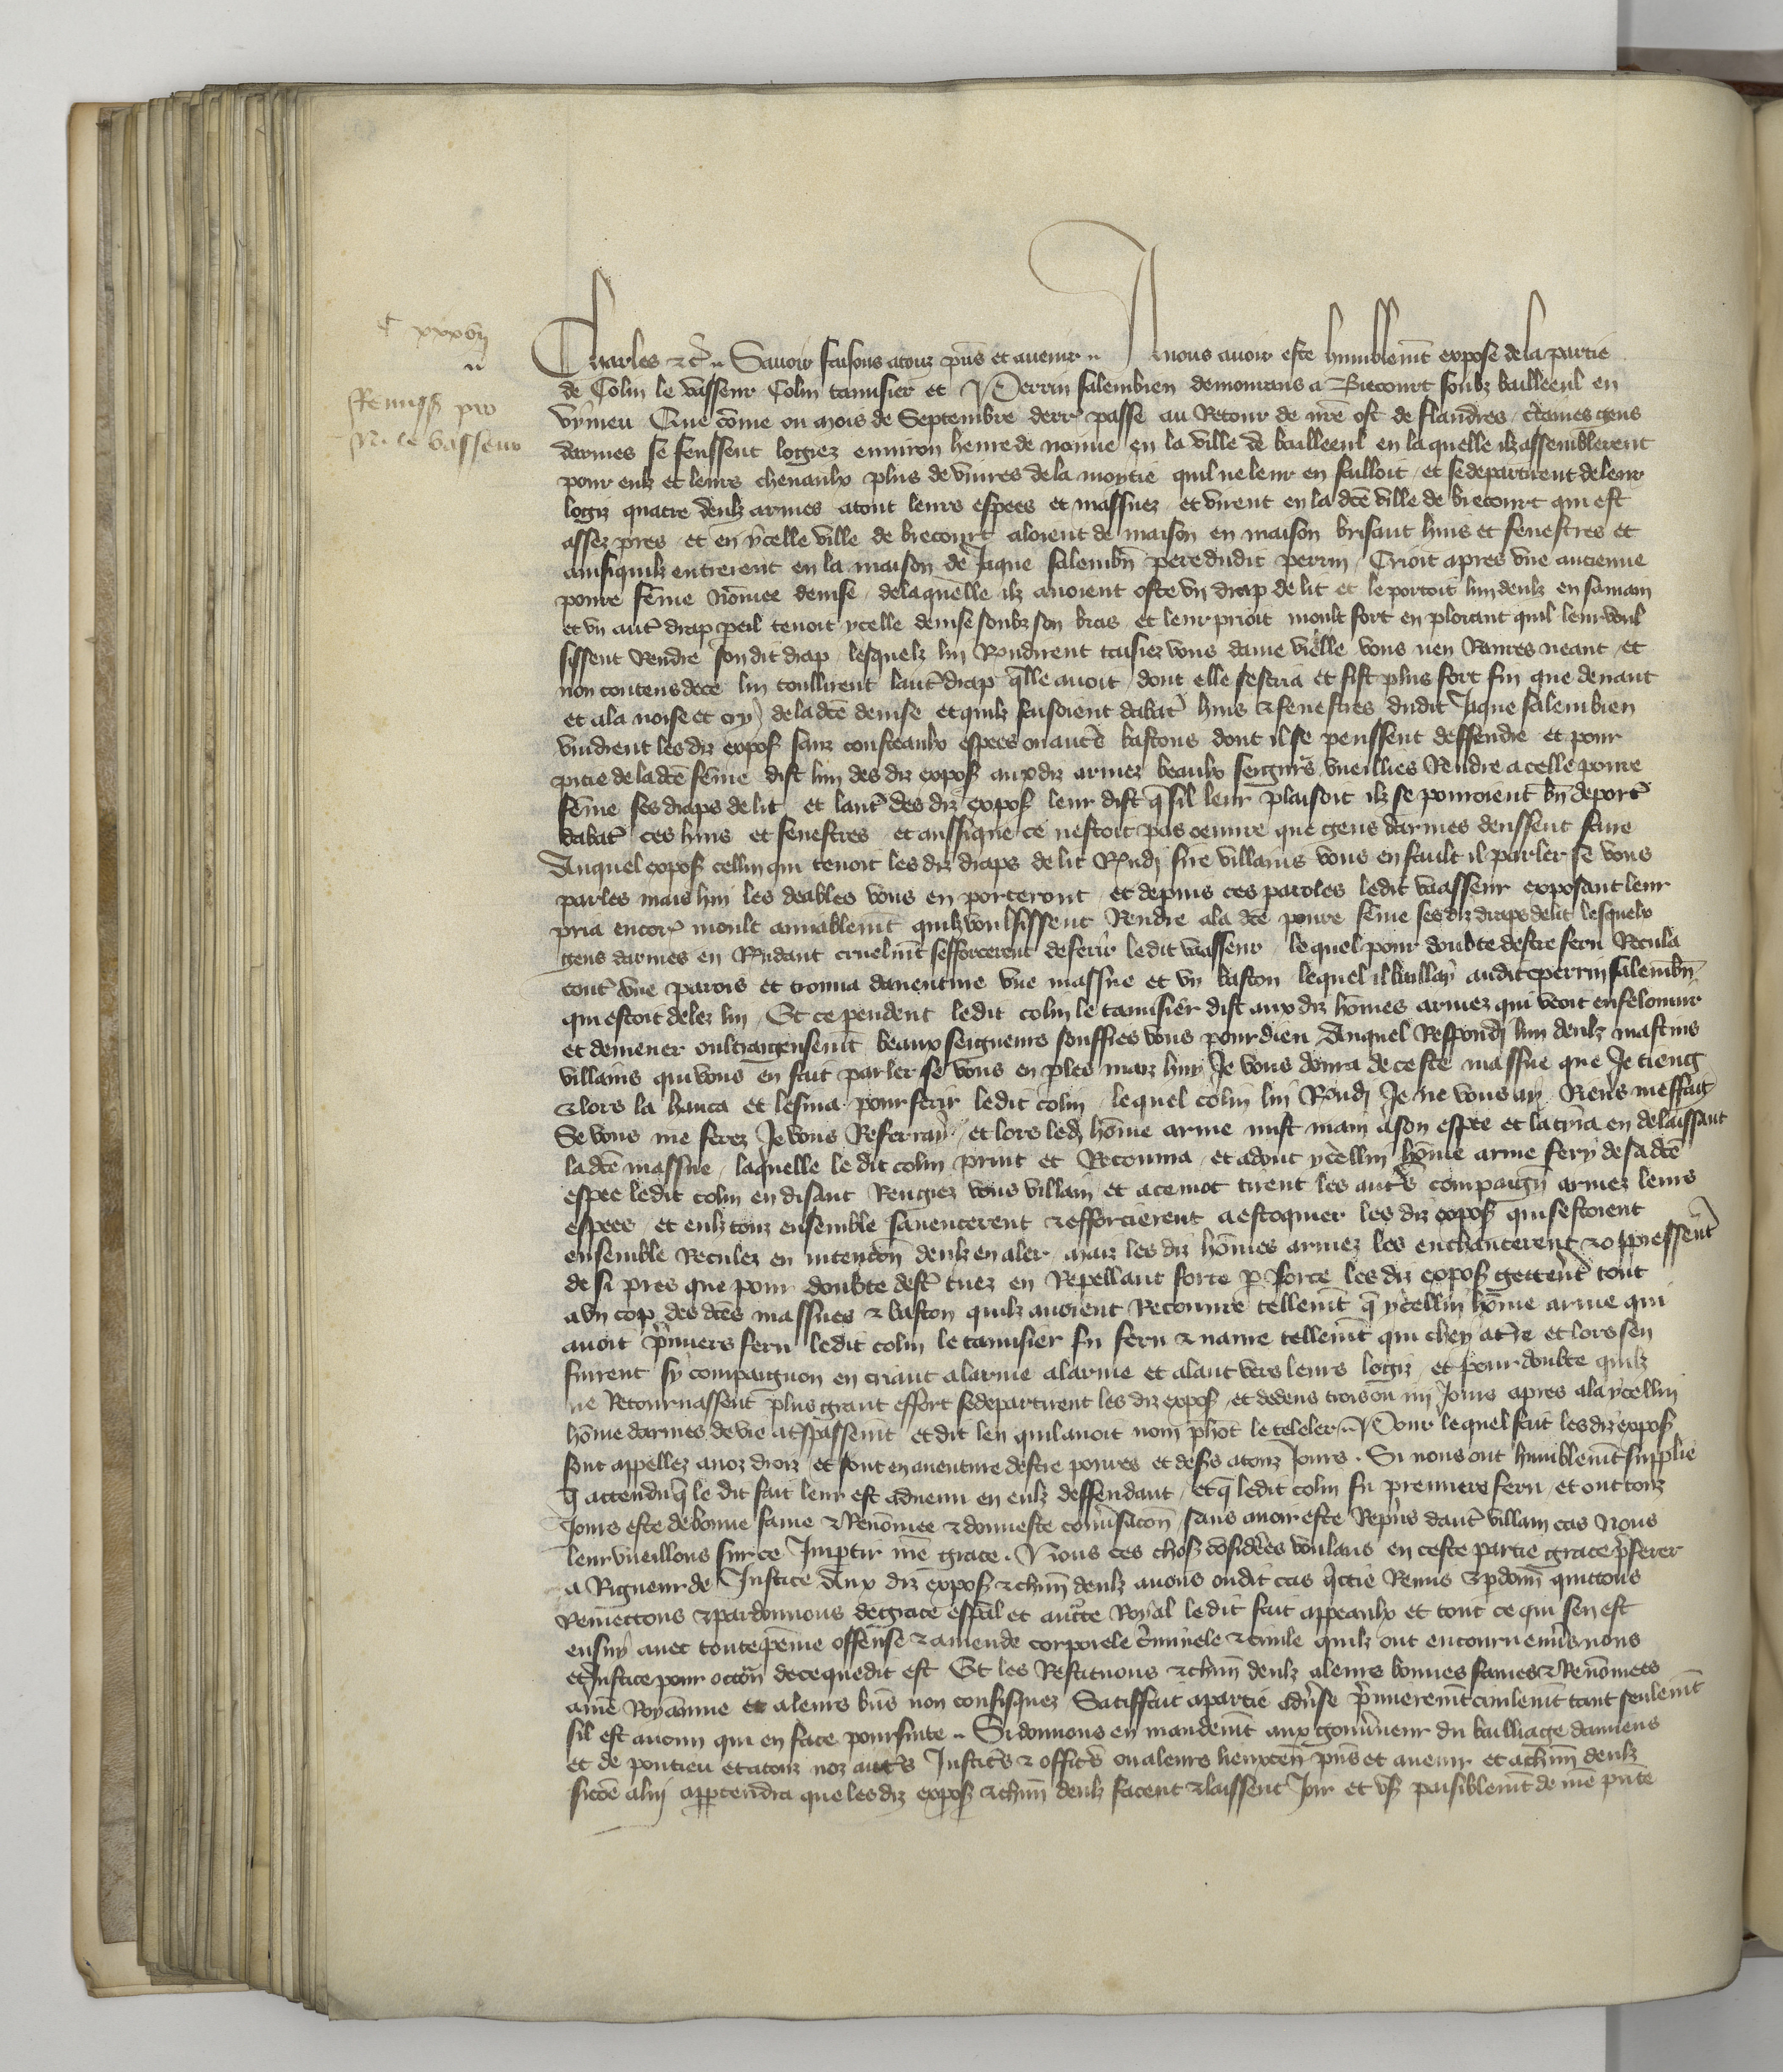 C xxxvii
Remiss pro
N. le vasseur
Charles &c Savoir faisons a touz pns et avenir A nous avoir este humblemt expose de la partie
de Colin le vasseur Colin tamisier et Perrin salembien demourans a Biecourt soubz bailleeul en
vymeu Que come ou mois de Septembre derr passe au Retour de nre ost de flandres ctaines gens
darmes se feussent logiez environ heure de nonne en la ville de bailleeul en laquelle ilz assemblerent
pour eulz et leurs chevaulx plus de vivres de la moytie quil ne leur en failloit et se departirent de leur
logiz quatre deulz armes atout leurs espees et massues et virent en la dce ville de biecourt qui est
assez pres et en ycelle ville de biecourt aloient de maison en maison brisant huis et fenestres et
ainsi quilz entrerent en la maison de Jaque salembn pere dudit perrin Crioit apres une ancienne
povre feme nomee denise de laquelle ilz avoient oste un drap de lit et le portoit lun deulz en sa main
et un aut drap peil tenoit ycelle denise soubz son bras et leur prioit moult fort en plorant quil leur voul
sissent Rendre son dit drap lesquelz luy Rndirent taisiez vous dame vielle vous nen Raures neant et
non contens de ce luy tollirent laut drap qlle avoit dont elle sescria et fist plus fort fin que devant
et a la noise et cry de la dce denise et quilz faisoient dabat huis & fenestres dudit Jaque salembien
vindrent les diz expos sanz cousteaulx espees ou autes bastons dont il se peussent deffendre et pour
pitie de la dce feme dist lun des diz expos aux diz armez beaulx seignrs vueillies Rendre a celle povre
feme ses draps de lit et laut des diz expos leur dist q sil leur plaisoit ilz se pourroient bn deport
dabat ces huis et fenestres et aussi que ce nestoit pas oeuvre que gens darmes deussent faire
Auquel expos cellui qui tenoit les diz draps de lit Rndi sire villains vous en fault il parler se vous
parles mais huy les deables vous en porteront et depuis ces paroles ledit vasseur exposant leur
pria encor moult amiablemt quilz voulsissent Rendre a la dce povre feme ses diz draps de lit lesquelx
gens darmes en Rndant cruelmt sefforcerent de ferir ledit vasseur lequel pour doubte destre feru Recula
cont une parois et trouva daventure une massue et un baston lequel il bailla audit perrin salembn
qui estoit delez luy Et ce pendent ledit colin le tamisier dist aux diz homes armez qui veoit enfelonnir
et demener oultrageusemt beaux seigneurs souffres vous pour dieu Auquel Respondi lun deulz mastins
villains qui vous en fait parler se vous en ples maiz huy Je vous donra de ceste massue que Je tieng
& lors la hauca et lesma pour ferir ledit colin lequel colin luy Rndi Je ne vous ay Riens meffait
Se vous me ferez Je vous Referray et lors led home arme mist main a son espee et la tira en delaissant
la dce massue laquelle le dit colin print et Recouvra et adont ycellui home arme fery de sa dce
espee ledit colin en disant Rengiez vous villain et a ce mot tirent les auts compaign armez leurs
espees et eulz touz ensemble savencerent & efforcierent a estoquier les diz expos qui sestoient
ensemble Reculez en intencon deulz en aler maiz les diz homes armez les enchaucerent & oppressent
de si pres que pour doubte dest tuez en Repellant force p force les diz expos getterent tout
a un cop des dces massues & baston quilz avoient Recouvre tellemt q ycellui home arme qui
avoit pmiers feru ledit colin le tamisier fu feru & navre tellemt qui chey a tre et lors sen
fuirent sy compaignon en criant alarme alarme et alant vers leurs logiz et pour doubte quilz
ne Retournassent plus grant effort se departirent les diz expos et dedens trois ou iiii Jours apres ala ycellui
home darmes de vie a tspassemt et dit len quil avoit nom phot le teleler Pour lequel fait les diz expos
sont appellez a noz droiz et sont en aventure destre povres et desers a touz Jours. Si nous ont humblemt supplie
q attendu q le dit fait leur est advenu en eulz deffendant et q ledit colin fu premiere feru et ont touz
Jours este de bonne fame & Renomee & donneste convsacon sans avoir este Repris daut villain cas Nous
leur vueillons sur ce Impartir nre grace. Nous ces choses cosideres voulans en ceste partie grace pferer
a Rigueur de Justice Aux diz expos & chun deulz avons oudit cas qttie Remis & pdonn quittons
Remettons & pardonnons de grace espal et auctte Royal le dit fait appeaulx et tout ce qui sen est
ensuy avec toute peine offense & amende corporele criminele & civile quilz ont encouru envers nous
et Justice pour occon de ce que dit est Et les Restituons & chun deulz a leurs bonnes fames & Renomees
a nre Royaume et a leurs bns non confisquez Satisffait a partie adverse pmierement civilemt tant seulemt
sil est aucun qui en face poursuite Si donnons en mandemt aux gouvneur du bailliage damiens
et de pontieu et a touz noz auts Justiciers & officiers ou a leurs lieuxten pns et avenir et a chun deulz
sicoe a luy appartendra que les diz expos & chun deulz facent & laissent Joir et user paisiblemt de nre pnte